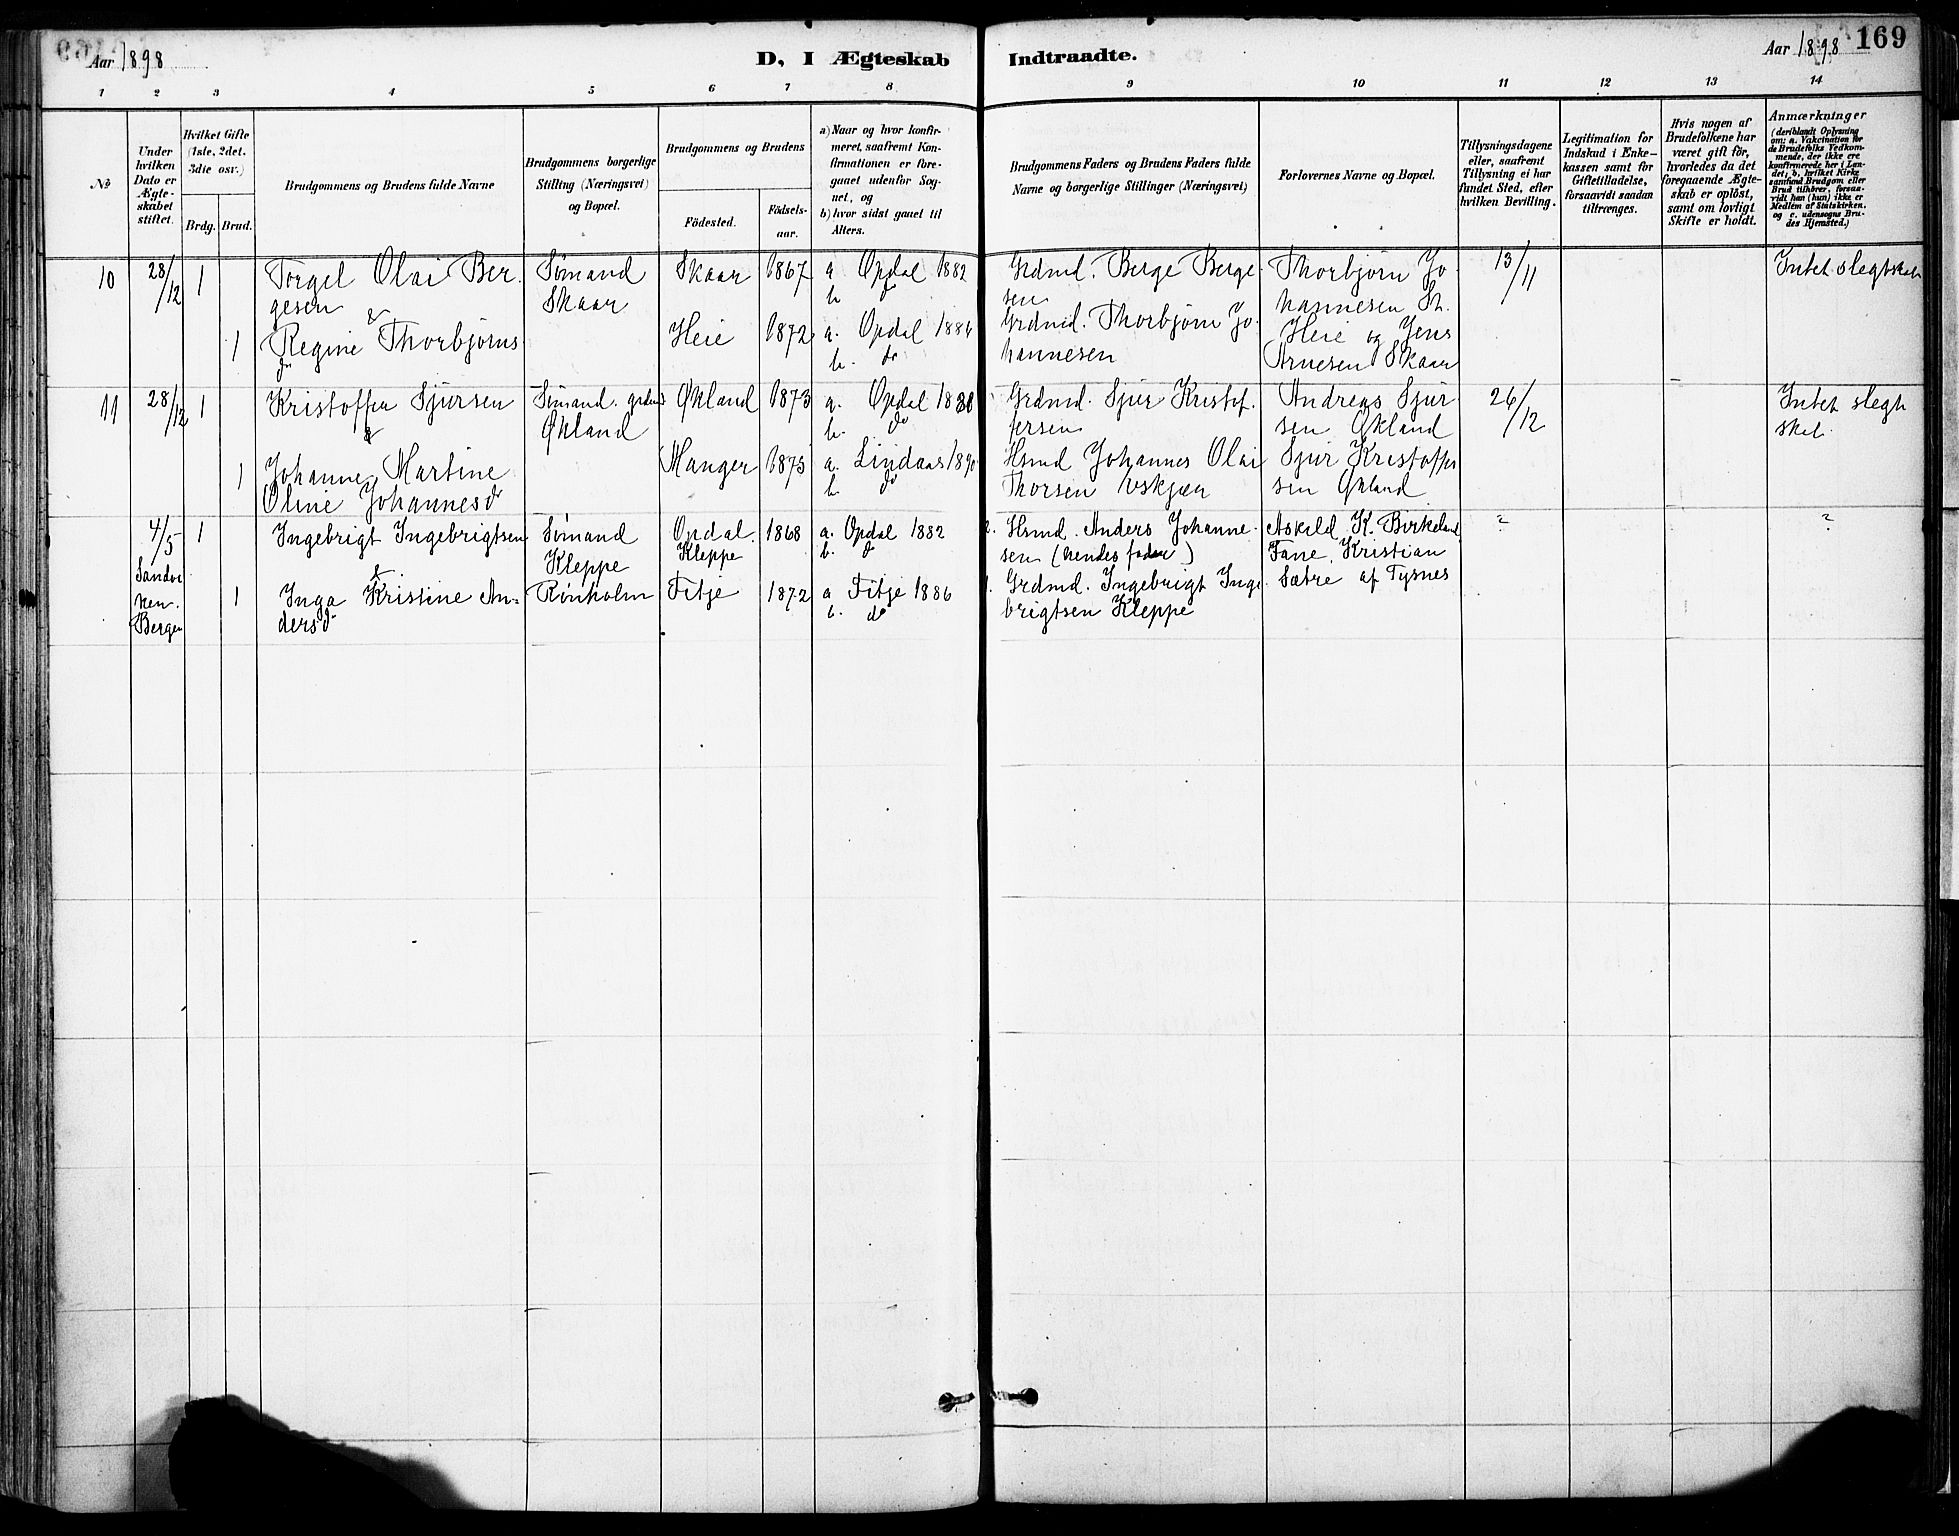 Aar 1898
D, I Ægteskab Indtraadte.
Aar 1898 169
1 2 3 4 5 6 7 8 9 10 11 12 13 14
No
Under
hvilken
Dato er
Ægte-
skabet
stiftet.
Hvilket Gifte
(1ste, 2det,
3die osv.)
Brdg. Brud.
Brudgommens og Brudens fulde Navne
Brudgommens borgerlige
Stilling (Næringsvei)
og Bopæl.
Brudgommens og Brudens
Födested.
Födsels-
aar.
a) Naar og hvor konfir-
meret, saafremt Kon-
firmationen er fore-
gaaet udenfor Sog-
net, og
b) hvor sidst gaaet til
Alters.
Brudgommens Faders og Brudens Faders fulde
Navne og borgerlige Stillinger (Næringsvei)
Forlovernes Navne og Bopæl.
Tillysningsdagene
eller, saafremt
Tillysning ei har
fundet Sted, efter
hvilken Bevilling.
Legitimation for
Indskud i Enke-
kassen samt for
Giftetilladelse,
forsaavidt saadan
tiltrænges.
Hvis nogen af
Brudefolkene har
været gift för,
hvorledes da det
foregaaende Ægte-
skab er oplöst,
samt om lovligt
Skifte er holdt.
Anmærkninger
(deriblandt Oplysning
om: a. Vakcination for
de Brudefolks Vedkom-
mende, der ikke ere
konfirmerede her i Lan-
det, b. hvilket Kirke
samfund Brudgom eller
Brud tilhörer, forsaa-
vidt han (hun) ikke er
Medlem af Statskirken.
og c. udensogns Bru-
des Hjemsted.)
10 28/12 1 Torgel Olai Ber
gesen
&
Sømand
Skaar
Skaar 1867 a Opdal 1882
b. do
Grdmd. Berge Berge
sen
Thorbjørn Jo
hannesen St.
13/11
Intet slegtskab
1 Regine Thorbjørns
dr
Heie 1872 a. Opdal 1886
b. do
Grdmd. Thorbjørn Jo
hannesen
Heie og Jens
Arnesen Skaar
11 28/12 1 Kristoffer Sjursen
&
Sømand
Økland
Økland 1873 a. Opdal
b. do
Grdmd. Sjur Kristof
fersen
Andreas Sjur
sen Økland
26/12
Intet slegt
skab
1 Johanne Martine
Oline Johannesdr
Manger 1875 a. Lindaas 1890
b. do
Hsmd Johannes Olai
Thorsen
Sjur Kristoffer
sen Økland
4/5
Sandvi
ken.
Bergen
1 Ingebrigt Ingebrigtsen
&
Sømand
Kleppe
Opdal.
Kleppe
1868 a. Opdal 1882
b. do
2. Hsmd. Anders Johanne
sen (hendes fader)
Askild K. Birkeland
Fane, Kristian
?
?
1 Inga Kristine An-
dersdr
Rønholm Fitje 1872 a Fitje 1886
b. do
1. Grdmd. Ingebrigt Inge
brigtsen Kleppe
Sætre af Tysnes